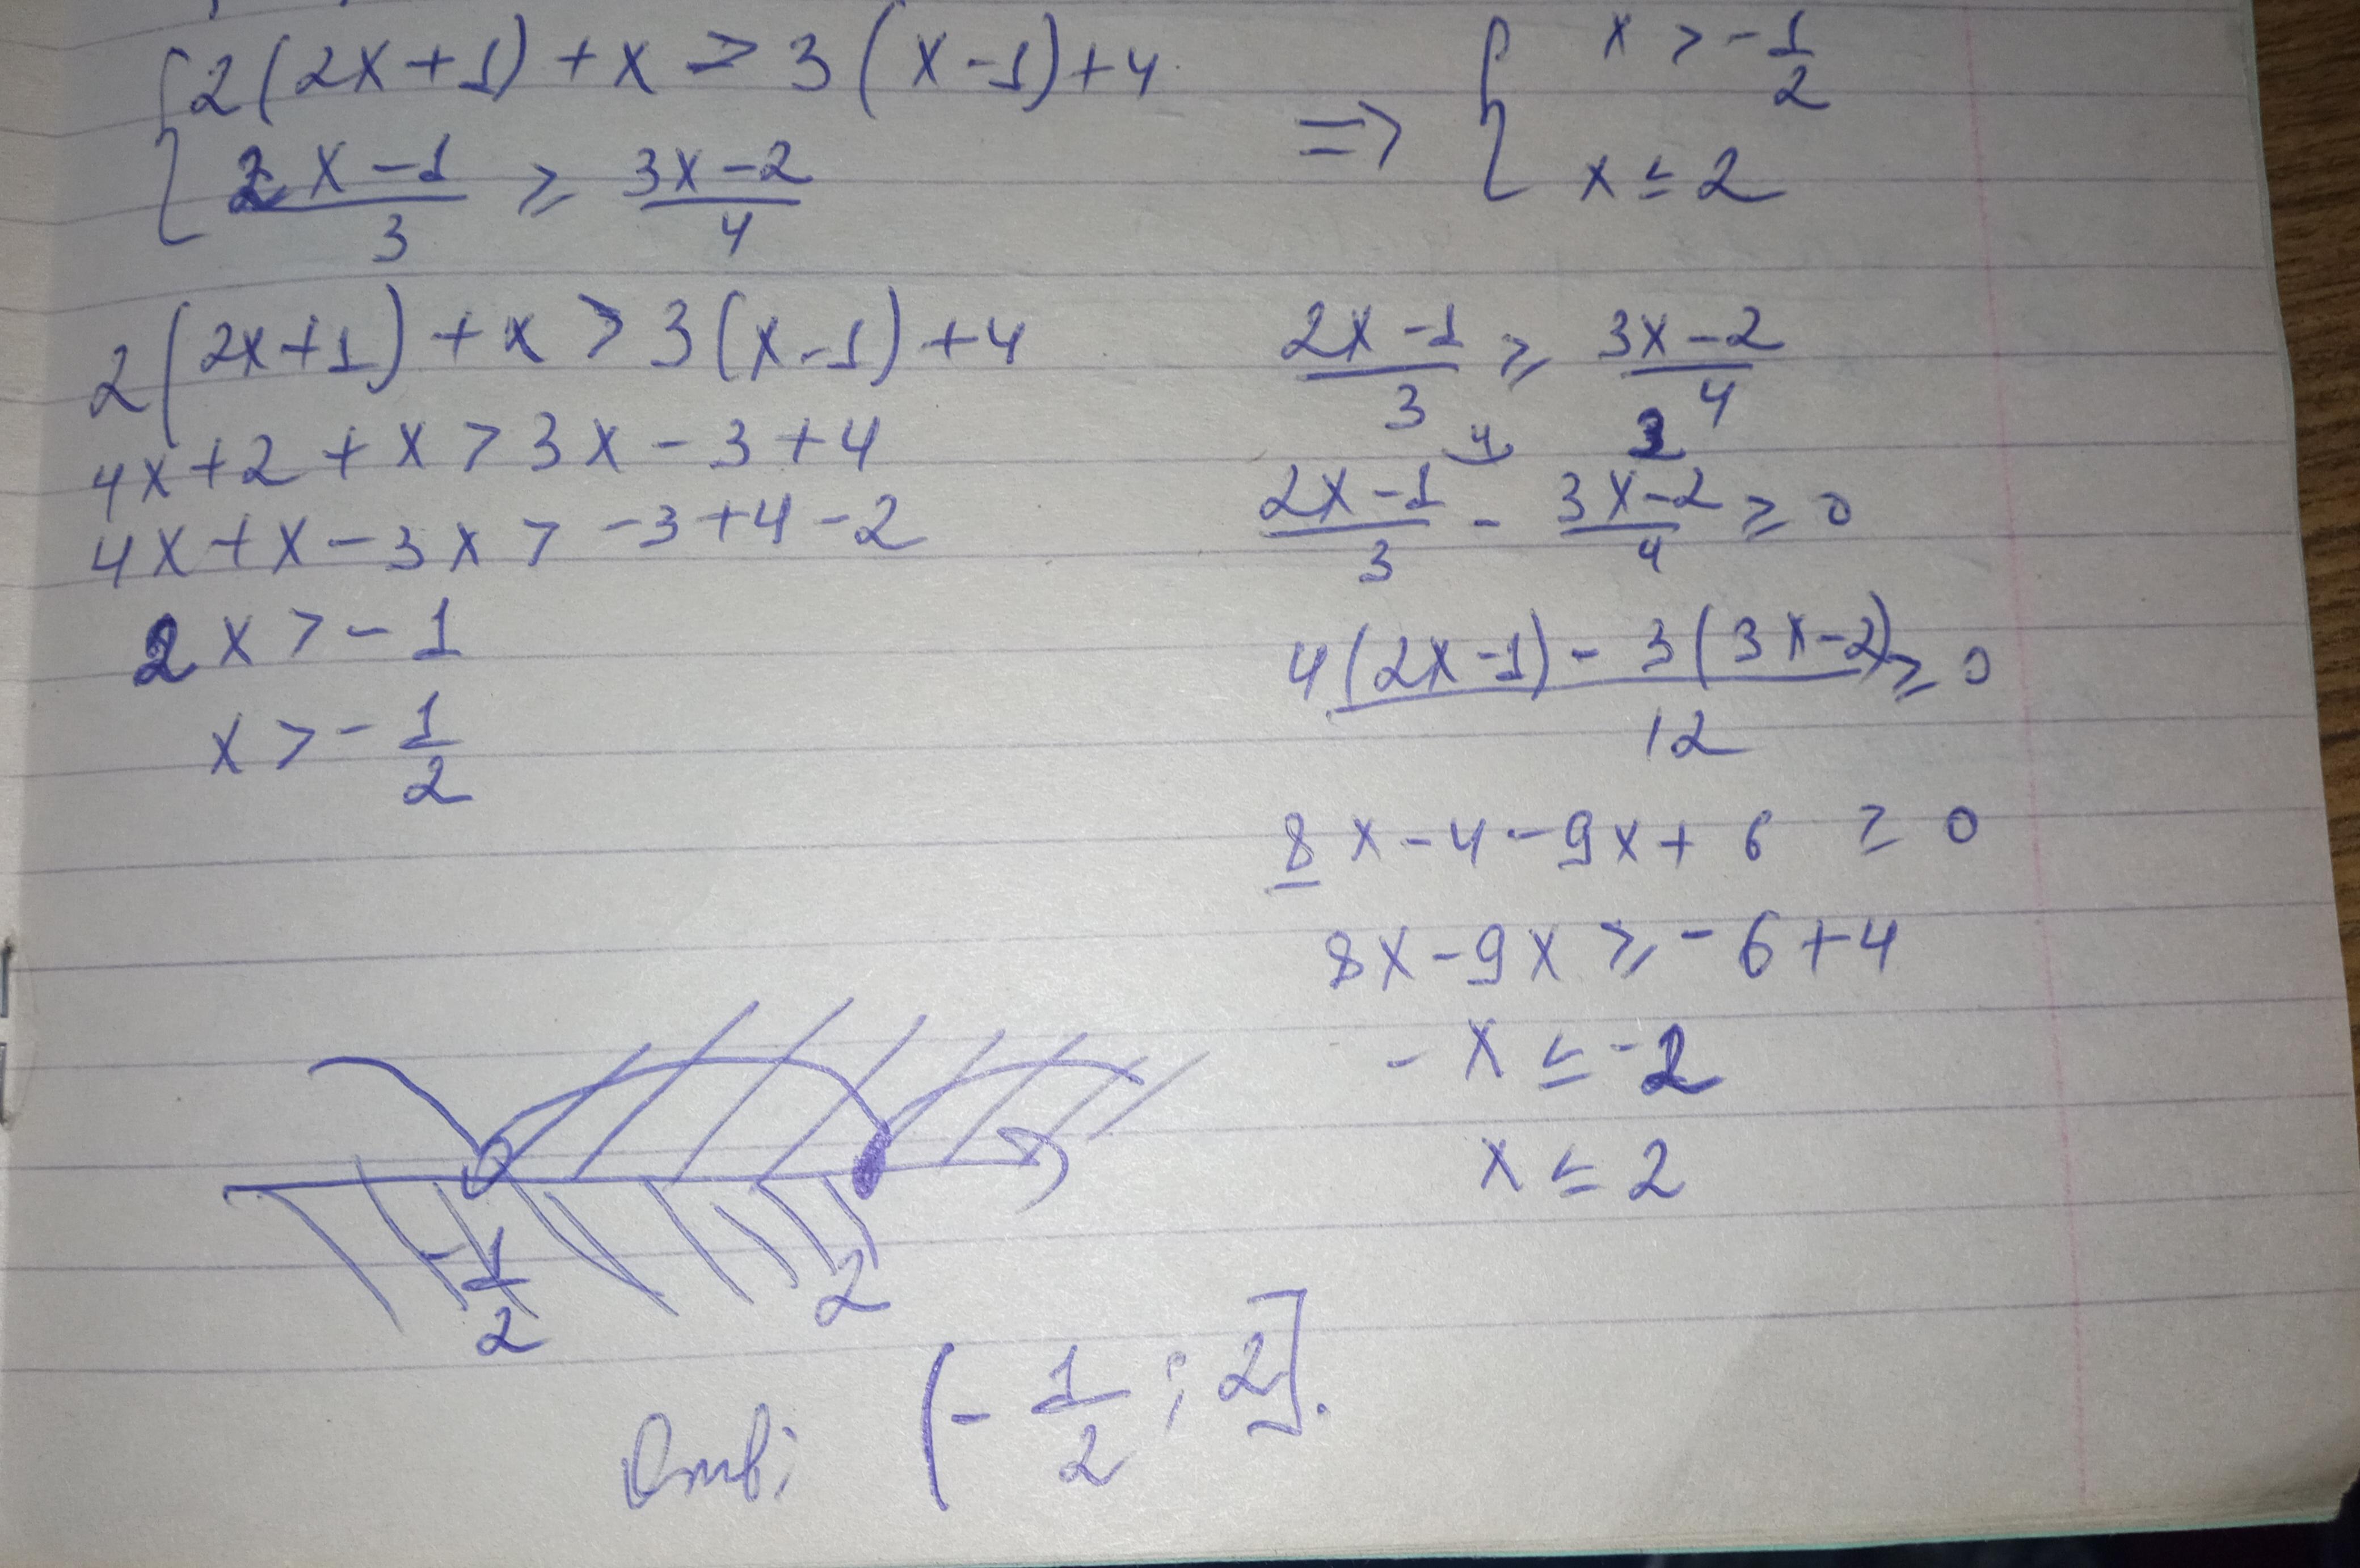 { 2(2x+1)+x > 3(x-1)+4
2x-1/3 ≥ 3x-2/4
=> { x > -1/2
x ≤ 2
2(2x+1)+x > 3(x-1)+4
4x+2+x > 3x-3+4
4x+x-3x > -3+4-2
2x > -1
x > -1/2
2x-1/3 ≥ 3x-2/4
4 3
2x-1/3 - 3x-2/4 ≥ 0
4(2x-1)-3(3x-2)/12 ≥ 0
8x-4-9x+6 ≥ 0
8x-9x ≥ -6+4
-x ≤ -2
x ≤ 2
-1/2 2
Отв: (-1/2; 2].